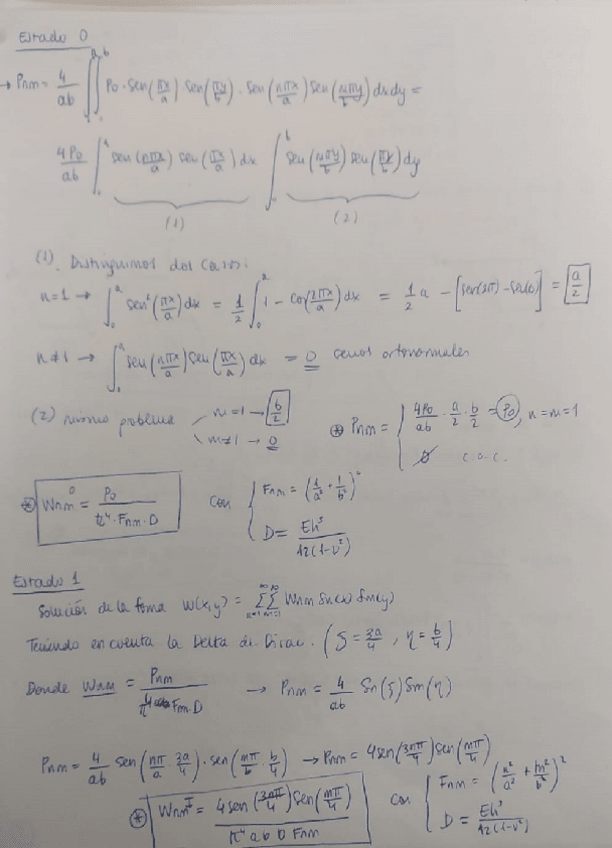 Estado 0
→ Pnm = 4/ab ∫₀ᵃ∫₀ᵇ P0 · sen(πx/a) sen(πy/b) · sen(nπx/a) sen(mπy/b) dx dy =
4P0/ab ∫₀ᵃ sen(nπx/a) sen(πx/a) dx ∫₀ᵇ sen(mπy/b) sen(πy/b) dy
(1) (2)
(1). Distinguimos dos casos:
n=1 → ∫₀ᵃ sen²(πx/a) dx = 1/2 ∫₀ᵃ 1 - cos(2πx/a) dx = 1/2 a - [sen(2π) - sen(0)] = a/2
n≠1 → ∫₀ᵃ sen(nπx/a) sen(πx/a) dx = 0 senos ortonormales
(2) mismo problema m=1 → b/2
m≠1 → 0
⊛ Pnm = { 4P0/ab · a/2 · b/2 = P0, n=m=1
0 c.o.c.
⊛ Wnm⁰ = P0 / π⁴ · Fnm · D con { Fnm = (1/a² + 1/b²)²
D = Eh³ / 12(1-ν²)
Estado 1
Solución de la forma W(x,y) = Σn=1 ∞ Σm=1 ∞ Wnm Sn(x) Sm(y)
Teniendo en cuenta la Delta de Dirac. (S = 3a/4, η = b/4)
Donde Wnm = Pnm / π⁴ Fnm D → Pnm = 4/ab Sn(ξ) Sm(η)
Pnm = 4/ab sen(nπ/a · 3a/4) · sen(mπ/b · b/4) → Pnm = 4 sen(3nπ/4) sen(mπ/4)
⊛ Wnm^I = 4 sen(3nπ/4) sen(mπ/4) / π⁴ a b D Fnm con { Fnm = (n²/a² + m²/b²)²
D = Eh³ / 12(1-ν²)